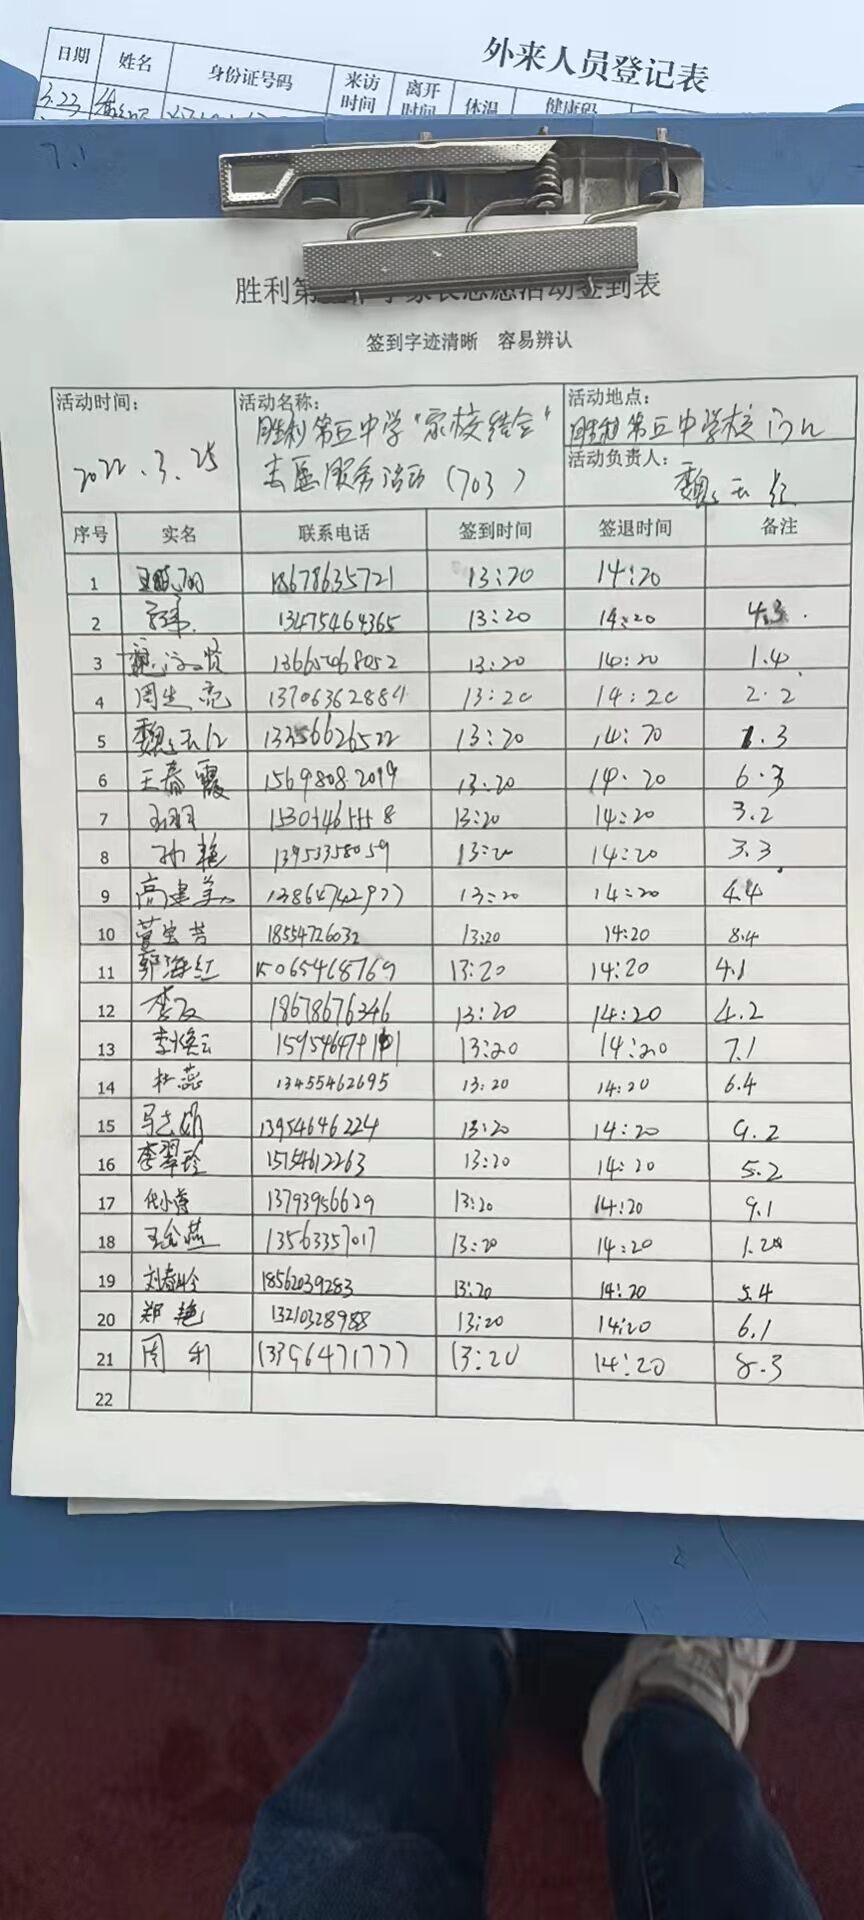 外来人员登记表
日期 姓名 身份证号码 来访时间 离开时间 体温 健康码
3.23
7.1
胜利第 活动签到表
签到字迹清晰 容易辨认
活动时间: 2022.3.25
活动名称: 胜利第五中学"家校结合"
志愿服务活动(703)
活动地点: 胜利第五中学校门口
活动负责人: 魏玉红
序号 实名 联系电话 签到时间 签退时间 备注
1 18678635721 13:20 14:20
2 13475464365 13:20 14:20 4.3
3 13665468052 13:20 14:20 1.4
4 周生亮 13706362884 13:20 14:20 2.2
5 魏玉红 13356626522 13:20 14:20 1.3
6 王春霞 15698082094 13:20 14:20 6.3
7 13:20 14:20 3.2
8 孙艳 13953358059 13:20 14:20 3.3
9 高建美 13864742977 13:20 14:20 4.4
10 18554726032 13:20 14:20 8.4
11 郭海红 15065468769 13:20 14:20 4.1
12 18678676346 13:20 14:20 4.2
13 李焕云 13:20 14:20 7.1
14 杜蕊 13455462695 13:20 14:20 6.4
15 13954646224 13:20 14:20 9.2
16 李翠珍 15154612263 13:20 14:20 5.2
17 13793956629 13:20 14:20 9.1
18 王金燕 13563357017 13:20 14:20 1.2
19 刘春岭 18562039283 13:20 14:20 5.4
20 郑艳 13210328988 13:20 14:20 6.1
21 周利 13396471777 13:20 14:20 8.3
22